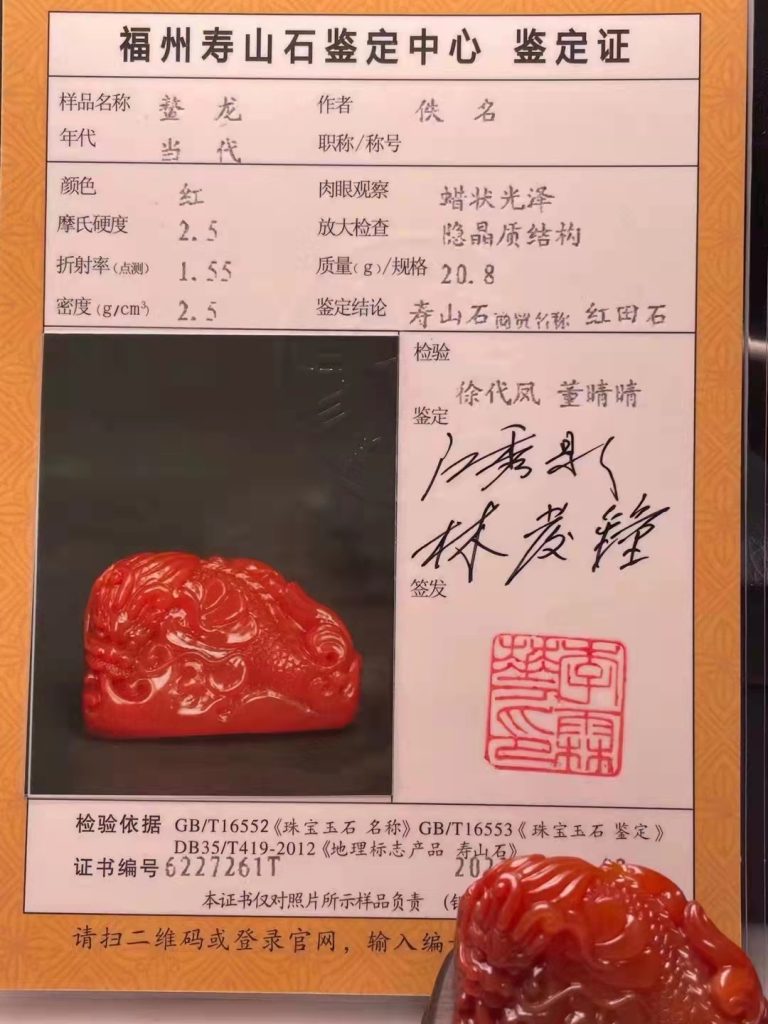 福州寿山石鉴定中心 鉴定证
样品名称 鳌龙 作者 佚名
年代 当代 职称/称号
颜色 红 肉眼观察 蜡状光泽
摩氏硬度 2.5 放大检查 隐晶质结构
折射率(点测) 1.55 质量(g)/规格 20.8
密度(g/cm³) 2.5 鉴定结论 寿山石 商贸名称 红田石
检验
徐代凤 董晴晴
鉴定
江秀影
林发鍾
签发
李霖
华印
检验依据 GB/T16552《珠宝玉石 名称》GB/T16553《珠宝玉石 鉴定》
DB35/T419-2012《地理标志产品 寿山石》
证书编号 6227261T 202
本证书仅对照片所示样品负责
请扫二维码或登录官网，输入编